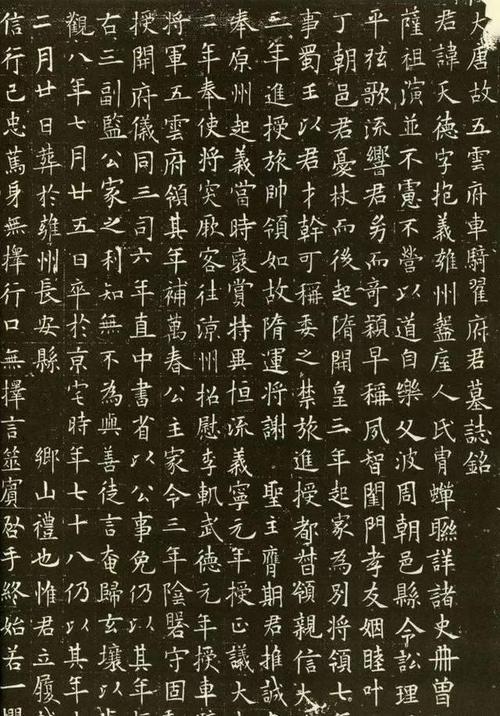 大唐故五雲府車騎翟府君墓誌銘
君諱天德字抱義雍州盩厔人氏胄蟬聯詳諸史冊曾
薩祖演並不憲不營以道自樂父波周朝邑縣令訟理
平弦歌流響君㓜而奇穎早稱夙智閨門孝友姻睦叶
丁朝邑君憂杖而後起隋開皇三年起家為別將領七
事蜀王以君才幹可稱委之禁旅進授都督領親信大
三年進授旅帥領如故隋運將謝　聖主膺期君推誠
奉原州起義當時褒賞特異恒流義寧元年授正議大
二年奉使將突厥客往涼州招慰李軌武德元年授車
將軍五雲府領其年補萬春公主家令三年陰磐守固
授開府儀同三司六年直中書省以公事免仍以其年
右三副監公家之利知無不為與善徒言奄歸玄壤以
觀八年七月廿五日卒於京宅時年七十八仍以其年
二月廿日葬於雍州長安縣　　鄉山禮也惟君立履
信行己忠篤身無擇行口無擇言筮賓啟手終始若一